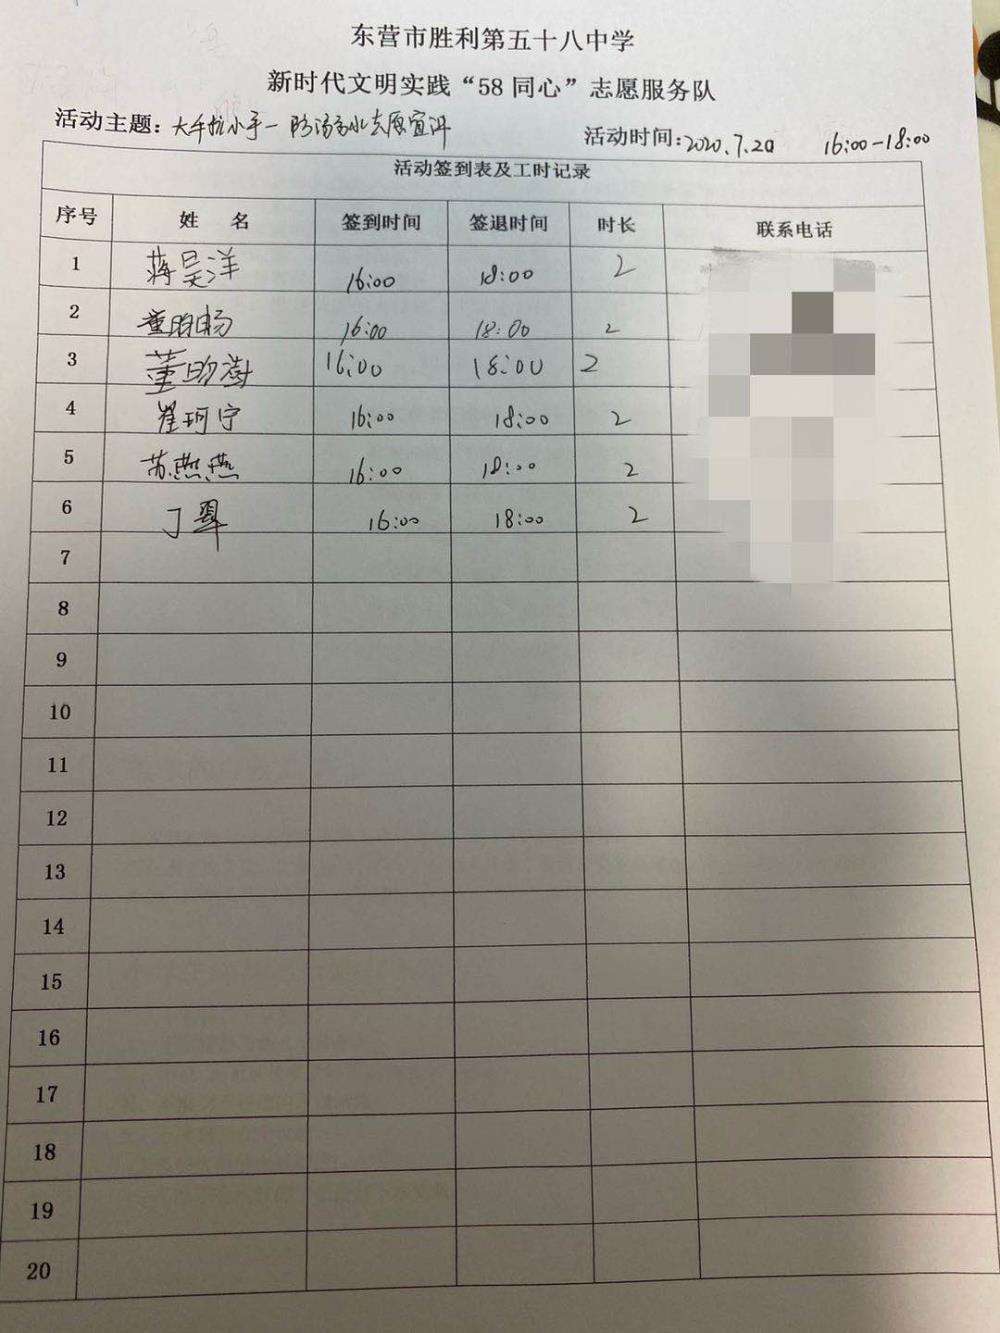 东营市胜利第五十八中学
新时代文明实践“58 同心”志愿服务队
活动主题: 大手拉小手— 防溺水志愿宣讲 活动时间: 2020.7.20 16:00-18:00
活动签到表及工时记录
序号 姓 名 签到时间 签退时间 时长 联系电话
1 蒋昊洋 16:00 18:00 2
2 董昀畅 16:00 18:00 2
3 董昀澍 16:00 18:00 2
4 崔珂宁 16:00 18:00 2
5 苏燕燕 16:00 18:00 2
6 丁 16:00 18:00 2
7
8
9
10
11
12
13
14
15
16
17
18
19
20